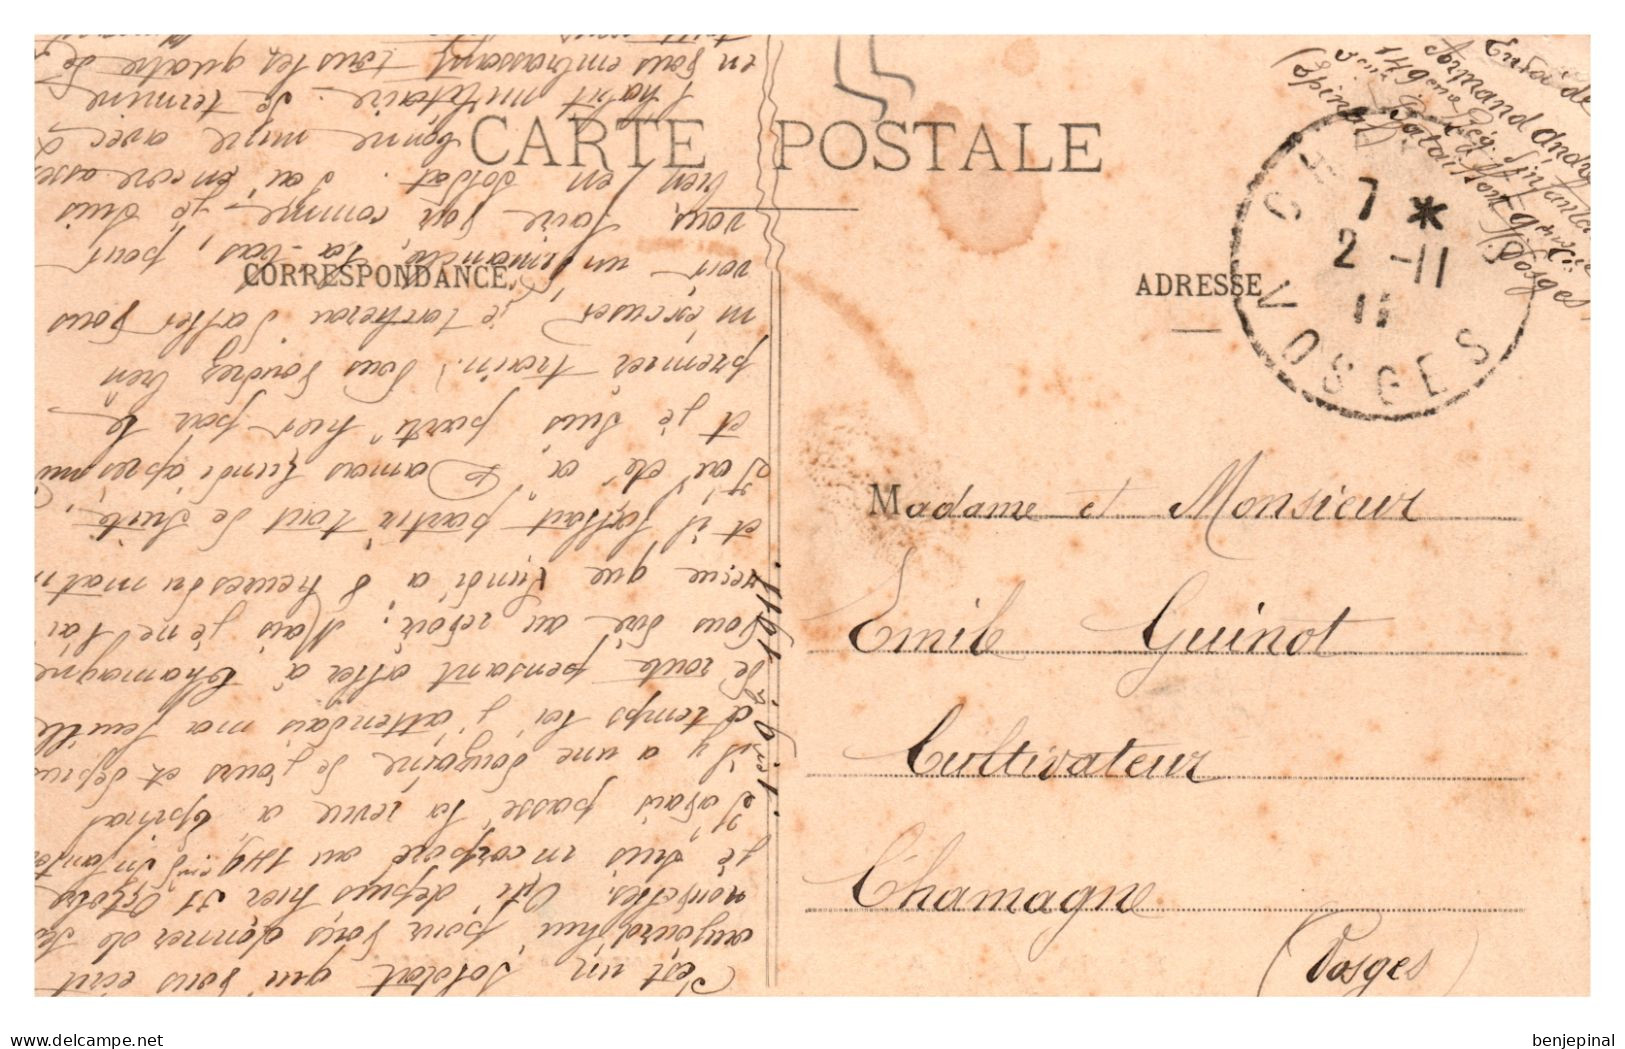 CARTE POSTALE
CORRESPONDANCE
ADRESSE
Envoi de
Armand André
149ème Rég. d'infanterie
3ème Bataillon 9ème Cie
Epinal Vosges
7 *
2 - 11
11
VOSGES
Madame et Monsieur
Emile Guinot
Cultivateur
Chamagne
(Vosges)
1er 9bre 1911.
C'est un soldat qui vous écrit
aujourd'hui pour vous donner de ses
nouvelles. Oui depuis hier 31 Octobre
je suis incorporé au 149ème d'Infanterie
J'avais passé la revue à Epinal
il y a une douzaine de jours et depuis
ce temps là j'attendais ma feuille
de route pensant aller à Chamagne
vous dire au revoir. Mais je ne l'ai
reçue que Lundi à 8 heures du matin
et il fallait partir tout de suite.
J'ai été à Damas Lundi après midi
et je suis parti hier par le
premier train. Vous voudrez bien
m'excuser je tacherai d'aller vous
voir un dimanche, là-bas, pour
vous faire voir comme je suis
bien en soldat. J'ai encore assez
bonne mine avec
l'habit militaire. Je termine
en vous embrassant tous les quatre de